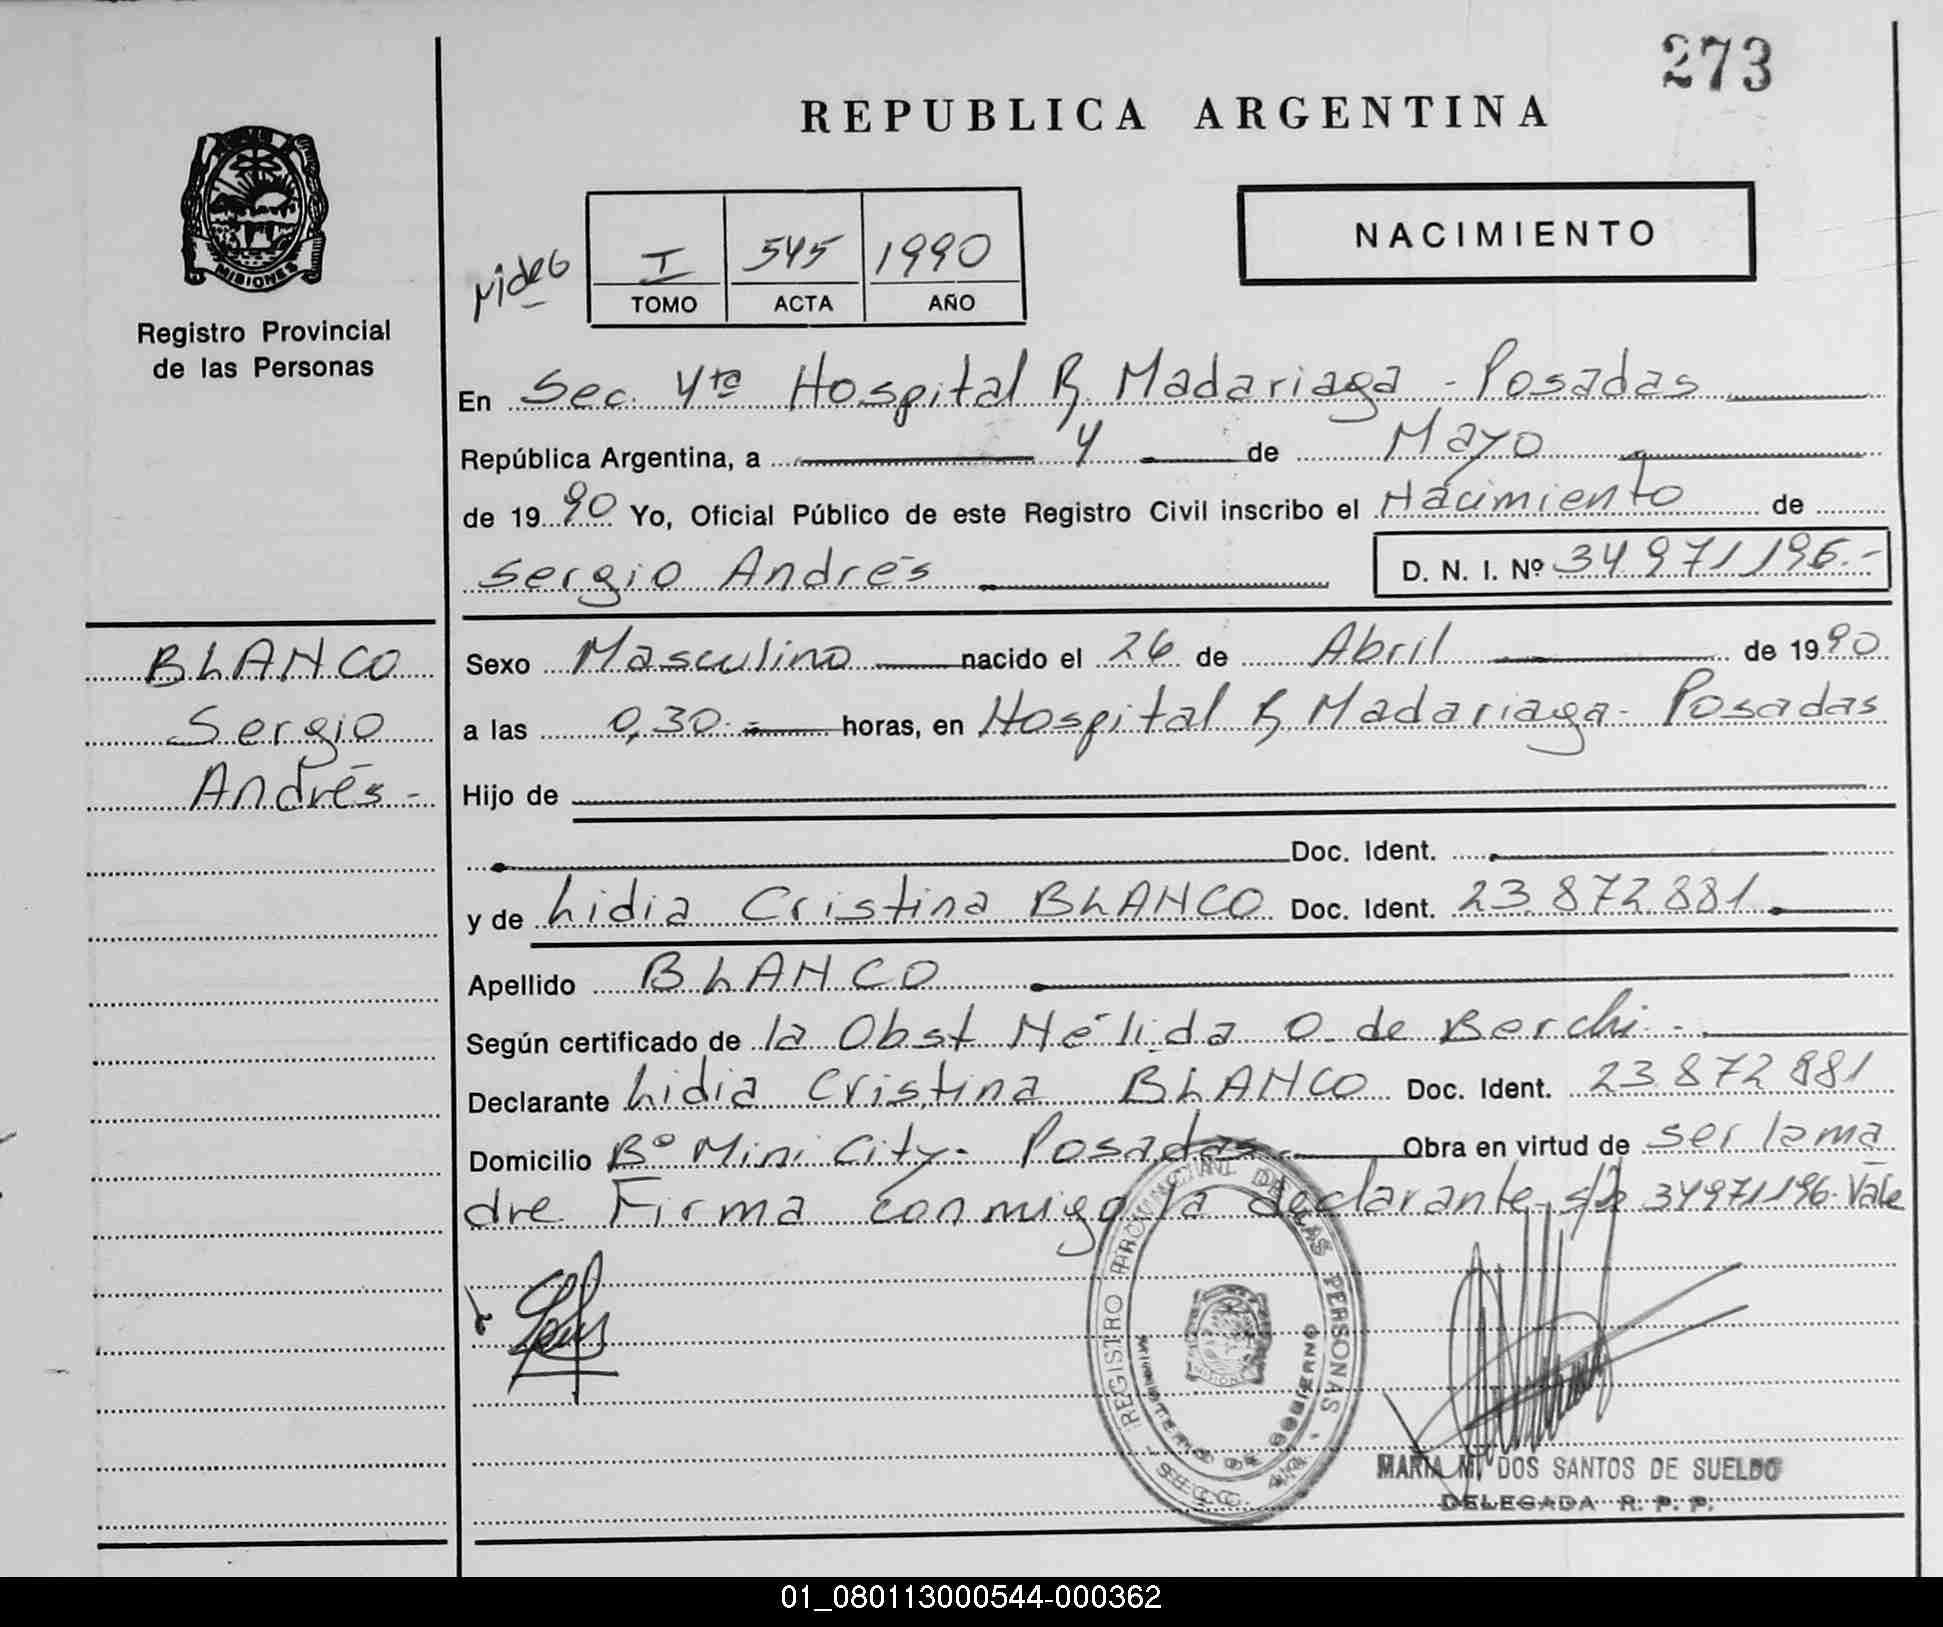 273
REPUBLICA ARGENTINA
NACIMIENTO
I 545 1990
TOMO ACTA AÑO
MISIONES
Registro Provincial
de las Personas
En Sec. 4ta Hospital R. Madariaga - Posadas
República Argentina, a 4 de Mayo
de 1990 Yo, Oficial Público de este Registro Civil inscribo el Nacimiento de
Sergio Andrés D. N. I. Nº 34971196.-
BLANCO
Sergio
Andrés -
Sexo Masculino nacido el 26 de Abril de 1990
a las 0,30 horas, en Hospital R. Madariaga - Posadas
Hijo de
Doc. Ident.
y de Lidia Cristina BLANCO Doc. Ident. 23.872.881
Apellido BLANCO
Según certificado de la Obst Nélida O. de Berchi -
Declarante Lidia Cristina BLANCO Doc. Ident. 23.872.881
Domicilio Bº Mini City - Posadas Obra en virtud de ser la ma
dre Firma conmigo la declarante s/r 34971196. Vale
REGISTRO PROVINCIAL DE LAS PERSONAS
MINISTERIO DE GOBIERNO
MARIA M. DOS SANTOS DE SUELDO
DELEGADA R. P. P.
01_080113000544-000362